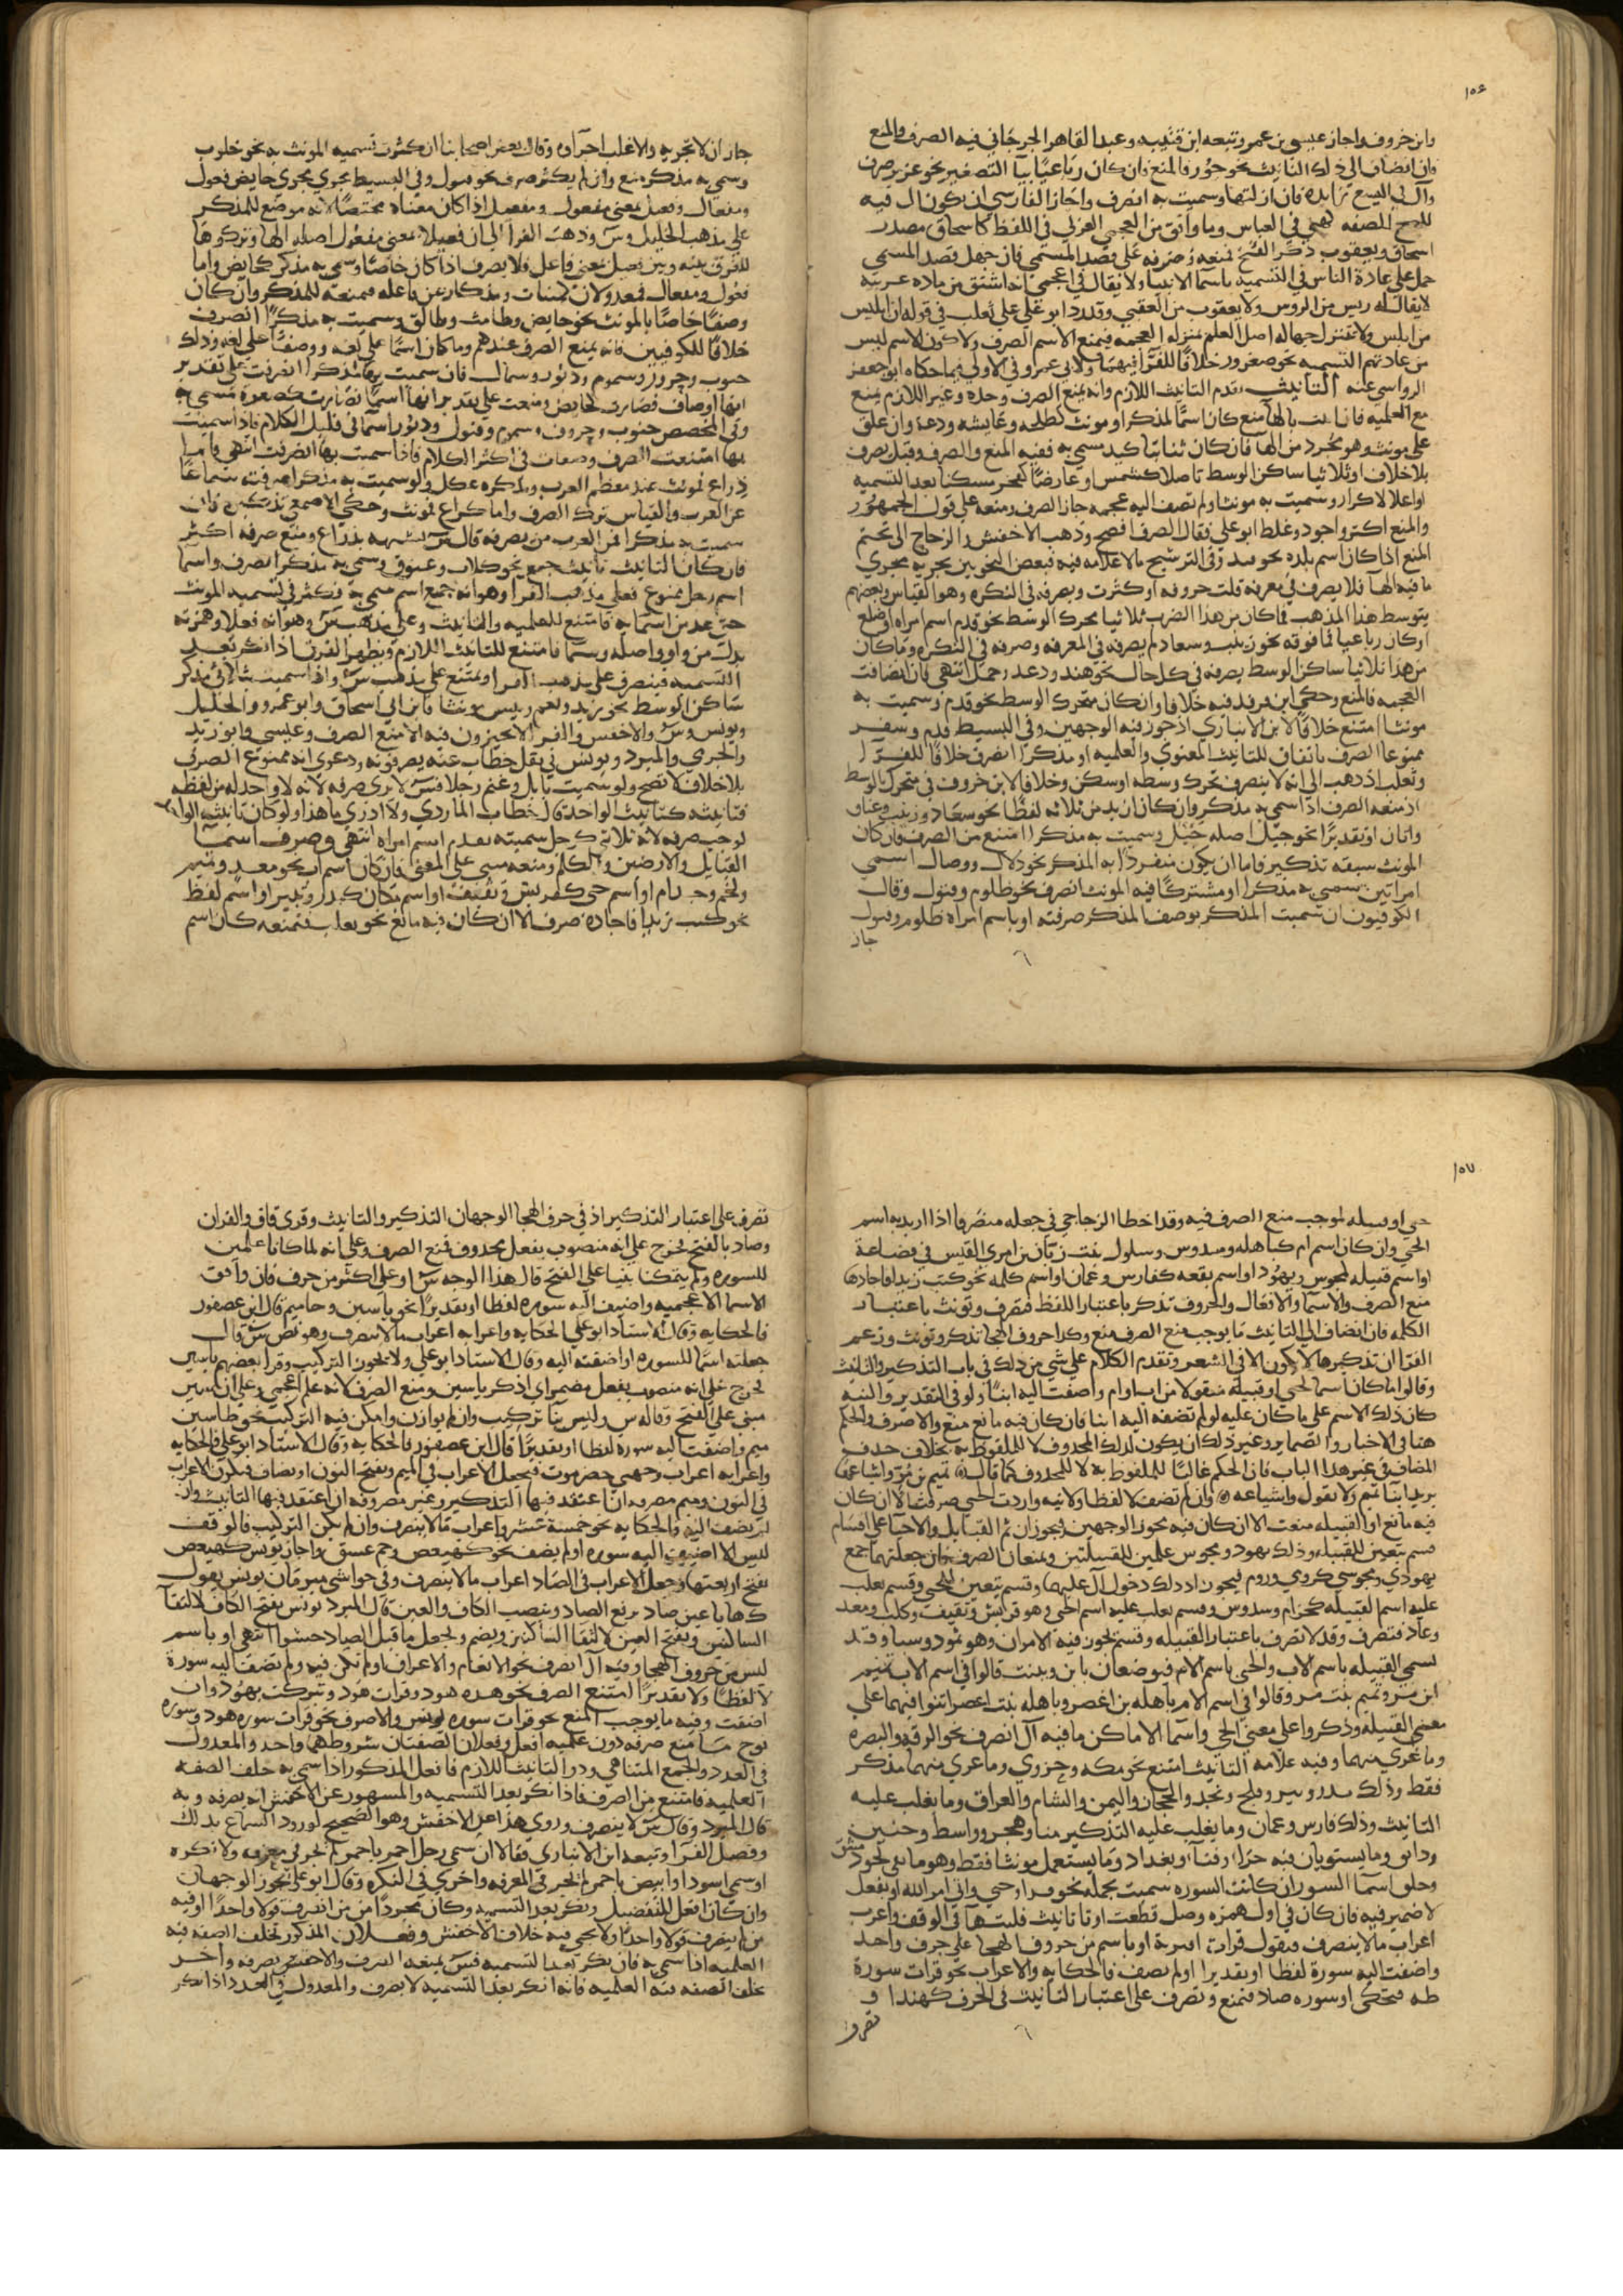 ١٥٤
وابن خروف واجاز عيسى بن عمر وتبعه ابن قتيبه وعبد القاهر الجرجاني فيه الصرف والمنع
فان انضاف الى ذلك التانيث نحو جور فالمنع وان كان رباعيا بيا التصغير نحو عزير صرف
وال في اليسع زايده فان ازلتها وسميت به انصرف واجاز الفارسي ان يكون ال فيه
للمح الصفه كهي في العباس وما وافق من العجمي العربي في اللفظ كاسحاق مصدر
اسحاق ويعقوب ذكر القبج فمنعه وصرفه على قصد المسمي فان جهل قصد المسمى
حمل على عادة الناس في التسميه باسما الانبيا ولا يقال في اعجمي انه اشتق من ماده عربيه
لا يقال ادريس من الدروس ولا يعقوب من العقبي وقد رد ابو علي على ثعلب في قوله ان ابليس
من ابلس ولا تتنزل جهالة اصل العلم منزلة العجمه فيمنع الاسم الصرف ولا كون الاسم ليس
من عادتهم التسميه نحو صعرور خلافا للفرا فيهما ولابي عمرو في الاولى فيما حكاه ابو جعفر
الرواسي عنه التانيث تقدم التانيث اللازم وانه يمنع الصرف وحده وغير اللازم يمنع
مع العلميه فان انث بالها منع كان اسما لمذكر او مونث كطلحه وعايشه ودعه وان علق
على مونث وهو مجرد من الها فان كان ثنائيا كيد مسمى به ففيه المنع والصرف وقيل يصرف
بلا خلاف او ثلاثيا ساكن الوسط تاصلا كشمس او عارضا كفخر مسكنا بعد التسميه
او اعلالا كدار وسميت به مونثا ولم تضف اليه عجمه جاز الصرف ومنعه على قول الجمهور
والمنع اكثر واجود وغلط ابو علي فقال الصرف افصح وذهب الاخفش والزجاج الى تحتم
المنع اذا كان اسم بلده نحو فيد وفي الترشيح ما لا علامه فيه فبعض النحويين يجريه مجرى
ما فيه الها فلا يصرف في معرفه قلت حروفه او كثرت ويصرفه في النكره وهو القياس وبعضهم
يتوسط هذا المذهب فما كان من هذا الضرب ثلاثيا محرك الوسط نحو قدم اسم امراه او ضلع
او كان رباعيا فما فوقه نحو زينب وسعاد لم يصرفه في المعرفه وصرفه في النكره وما كان
من هذا ثلاثيا ساكن الوسط يصرفه في كل حال نحو هند ودعد وجمل انتهى فان انضافت
العجمه فالمنع وحكى ابن فيه خلافا وان كان متحرك الوسط نحو قدم وسميت به
مونثا امتنع خلافا لابن الانباري اذ جوز فيه الوجهين وفي البسيط قدم وسقر
ممنوعا الصرف باتفاق للتانيث المعنوي والعلميه او مذكرا انصرف خلافا للفرا
وثعلب اذ ذهب الى انه لا ينصرف تحرك وسطه او سكن وخلافا لابن خروف في متحرك الوسط
اذ منعه الصرف اذا سمي به مذكر وان كان ازيد من ثلاثه لفظا نحو سعاد وزينب وعناق
واتان او تقديرا نحو جيل اصله جيئل وسميت به مذكرا امتنع من الصرف فان كان
المونث سبقه تذكير فاما ان يكون منفردا به المذكر نحو دلال ووصال اسمي
امراتين سمي به مذكرا او مشتركا فيه المونث انصرف نحو ظلوم وقتول وقال
الكوفيون ان سميت المذكر بوصف المذكر صرفته او باسم امراه ظلوم وقتول
جاز
جاز ان لا تجريه والاغلب اجراوه وقال بعض اصحابنا ان كثرت تسميه المونث به نحو خلوب
وسمي به مذكر منع وان لم يكثر صرف نحو قبول وفي البسيط يجري مجرى حايض فعول
ومفعال وفعيل بمعنى مفعول ومفعيل اذا كان معناه مختصا لانه موضع للمذكر
على مذهب الخليل وس وذهب الفرا الى ان فعيلا بمعنى مفعول اصله الها وتركوها
للفرق بينه وبين فعيل بمعنى فاعل فلا يصرف اذا كان خاصا وسمي به مذكر كحايض واما
فعول ومفعال فمعدولان كمئناث ومذكار عن فاعله فيمنعه للمذكر وان كان
وصفا خاصا بالمونث نحو حايض وطامث وطالق وسميت به مذكرا انصرف
خلافا للكوفيين فانه يمنع الصرف عندهم وما كان اسما على لغه ووصفا على لغه وذلك
جنوب وحرور وسموم ودبور وشمال فان سميت بها مذكرا انصرفت على تقدير
انها اوصاف فصارت كحايض ومنعت على تقدير انها اسما فصارت كصعود مسمى به
وفي المخصص جنوب وحرور وسموم وقبول ودبور اسما في قليل الكلام فاذا سميت
بها امتنعت الصرف وصفات في اكثر الكلام فاذا سميت بها انصرفت انتهى فاما
ذراع فمونث عند معظم العرب ومذكره عكل ولو سميت به مذكرا صرفته سماعا
عن العرب والقياس ترك الصرف واما كراع فمونث وحكى الاصمعي تذكيره فان
سميت به مذكرا فمن العرب من يصرفه قال س يشبهه بذراع ومنع صرفه اكثر
فان كان التانيث تانيث جمع نحو كلاب وعنوق وسمي به مذكر انصرف واسما
اسم رجل ممنوع فعلى مذهب الفرا وهو انه جمع اسم سمي به فكثر في تسميه المونث
حتى عد من اسمايه فامتنع للعلميه والتانيث وعلى مذهب س وهو انه فعلا وهمزته
بدل من واو واصله وسما فامتنع للتانيث اللازم ويظهر الفرق اذا نكر بعد
التسميه فينصرف على مذهب الفرا ويمتنع على مذهب س واذا سميت ثلاثي مذكر
ساكن الوسط نحو زيد ونعم وبيس مونثا فابن ابي اسحاق وابو عمرو والخليل
ويونس وس والاخفش والفرا لا يجيزون فيه الا منع الصرف وعيسى وابو زيد
والجرمي والمبرد ويونس في نقل خطاب عنه يصرفونه ودعوى انه ممنوع الصرف
بلا خلاف لا تصح ولو سميت بابل وغنم رجلا فس لا يرى صرفه لانه لا واحد له من لفظه
فتانيثه كتانيث الواحد قال خطاب الماردي ولا ادري ما هذا ولو كان تانيث الواحد
لوجب صرفه لانه ثلاثي كرجل سميته بقدم اسم امراه انتهى وصرف اسما
القبايل والارضين والكلم ومنعه مبني على المعنى فان كان اسم اب نحو معد وتميم
ولخم وجذام او اسم حي كقريش وثقيف او اسم مكان كبدر وثبير او اسم لفظ
نحو كتب زيدا فاجاده صرف الا ان كان فيه مانع نحو تغلب فتمنعه كان اسم
١٥٧
حي او قبيله لموجب منع الصرف فيه وقد اخطا الزجاجي في جعله منصرفا اذا اريد به اسم
الحي وان كان اسم ام كباهله وسدوس وسلول بنت زبان بن امرى القيس في قضاعة
او اسم قبيله كمجوس ويهود او اسم بقعه كفارس وعمان او اسم كلمه نحو كتب زيدا فاجادها
منع الصرف والاسما والافعال والحروف تذكر باعتبار اللفظ فتصرف وتونث باعتبار
الكلمه فان انضاف الى التانيث ما يوجب منع الصرف منع وكذا حروف الهجا تذكر وتونث وزعم
الفرا ان تذكيرها لا يكون الا في الشعر وتقدم الكلام على شي من ذلك في باب التذكير والتانيث
وقالوا ما كان اسما لحي او قبيله منقولا من اب او ام واضفت اليه ابنا ولو في التقدير والنيه
كان ذلك الاسم على ما كان عليه لو لم تضفه اليه ابنا فان كان فيه مانع منع والا صرف والحكم
هنا في الاخبار والضماير وغير ذلك ان يكون لذلك المحذوف لا للملفوظ به بخلاف حذف
المضاف في غير هذا الباب فان الحكم غالبا للملفوظ به لا للمحذوف كما قال تميم بن مر واشياعها
يريد ابنا تميم ولا يقول واشياعه وان لم تضف لا لفظا ولا نيه واردت الحي صرفت الا ان كان
فيه مانع او القبيله منعت الا ان كان فيه يجوز الوجهين فيجوزان ثم القبايل والاحيا على اقسام
قسم يتعين للقبيله وذلك يهود ومجوس علمين للقبيلتين ويمنعان الصرف فان جعلتهما جمع
يهودي ومجوسي كرومي وروم فيجوز اذ ذاك دخول ال عليهما وقسم يتعين للحي وقسم يغلب
عليه اسم القبيله كجذام وسدوس وقسم يغلب عليه اسم الحي وهو قريش وثقيف وكلب ومعد
وعاد فتصرف وقد لا تصرف باعتبار القبيله وقسم يجوز فيه الامران وهو ثمود وسبا وقد
تسمى القبيله باسم الاب والحي باسم الام فيوصفان بابن وبنت قالوا في اسم الاب تميم
ابن مر وتميم بنت مر وقالوا في اسم الام باهله بن اعصر وباهله بنت اعصر انثوا فيهما على
معنى القبيله وذكروا على معنى الحي واسما الاماكن ما فيه ال انصرف نحو الرقه والبصره
وما عري منهما وفيه علامه التانيث امتنع نحو مكه وحزوى وما عري منهما مذكر
فقط وذلك بدر وثبير وفلج ونجد والحجاز واليمن والشام والعراق وما يغلب عليه
التانيث وذلك فارس وعمان وما يغلب عليه التذكير منا وهجر وواسط وحنين
ودابق وما يستويان فيه حرا وقبا وبغداد وما يستعمل مونثا فقط وهو ما بقي نحو دمشق
وجلق اسما السور ان كانت السوره سميت بجمله نحو قل اوحي واتى امر الله او بفعل
لا ضمير فيه فان كان في اول همزه وصل قطعت او تا تانيث قلبتها في الوقف واعرب
اعراب ما لا ينصرف فتقول قرات اقتربة او باسم من حروف الهجا على حرف واحد
واضفت اليه سورة لفظا او تقديرا او لم تضف فالحكايه والاعراب نحو قرات سورة
طه فتحكي او سوره صاد فتمنع وتصرف على اعتبار التانيث في الحرف كهند او
تصرف
تصرف على اعتبار التذكير اذ في حرف الهجا الوجهان التذكير والتانيث وقرى قاف والقران
وصاد بالفتح فخرج على انه منصوب بفعل محذوف فمنع الصرف وعلى انه لما كانا علمين
للسوره ولم يتمكنا بنيا على الفتح قال هذا الوجه س او على اكثر من حرف فان وافق
الاسما الاعجميه واضيف اليه سوره لفظا او تقديرا نحو ياسين وحاميم قال ابن عصفور
فالحكايه وقال الاستاد ابو علي الحكايه واعرابه اعراب ما لا ينصرف وهو نص س قال
جعلته اسما للسوره او اضفته اليه وقال الاستاد ابو علي ولا يجوز التركيب وقرا بعضهم ياسين
فخرج على انه منصوب بفعل مضمر اي اذكر ياسين ومنع الصرف لانه علم اعجمي وعلى ان ياسين
مبني على الفتح وقاله س وليس بنا تركيب وان لم يوازن وامكن فيه التركيب نحو طاسين
ميم واضفت اليه سوره لفظا او تقديرا قال ابن عصفور فالحكايه وقال الاستاد ابو علي فالحكايه
واعرابه اعراب وجهي حضرموت فيجعل الاعراب في الميم ويفتح النون او يضاف فيكون الاعراب
في النون وميم مصروف ان اعتقد فيها التذكير وغير مصروف ان اعتقد فيها التانيث وان
لم يضف اليه فالحكايه نحو خمسة عشر واعراب ما لا ينصرف وان لم يمكن التركيب فالوقف
ليس الا اضيفت اليه سوره او لم يضف نحو كهيعص وحم عسق واجاز يونس كهيعص
بفتح اربعتها وجعل الاعراب في الصاد اعراب ما لا ينصرف وفي حواشي مبرمان يونس يقول
كهايا عين صاد برفع الصاد وينصب الكاف والعين قال المبرد يونس يفتح الكاف لالتقا
الساكنين ويفتح العين لالتقا الساكنين ويضم ولجعل ما قبل الصاد حشوا انتهى او باسم
ليس من حروف الهجا وفيه ال انصرف نحو الانعام والاعراف او لم تكن فيه ولم تضف اليه سورة
لا لفظا ولا تقديرا امتنع الصرف نحو هذه هود وقرات هود وتبركت بهود وان
اضفت وفيه ما يوجب المنع نحو قرات سوره يونس والا صرف نحو قرات سوره هود وسوره
نوح منع صرفه دون علميه افعل وفعلان الصفتان بشروطهما واحد والمعدول
في العدد والجمع المتناهي وذو التانيث اللازم فافعل المذكور اذا سمي به خلف الصفه
العلميه فامتنع من الصرف فاذا نكر بعد التسميه والمشهور عن الاخفش انه يصرفه وبه
قال المبرد وقال س لا ينصرف وروي هذا عن الاخفش وهو الصحيح لورود السماع بذلك
وفصل الفرا وتبعه ابن الانباري فقالا ان سمي رجل احمر باحمر لم يجر في معرفه ولا نكره
او سمي اسود او ابيض باحمر لم يجر في المعرفه واجري في النكره وقال ابو علي يجوز الوجهان
وان كان افعل للتفضيل ونكر بعد التسميه وكان مجردا من من انصرف قولا واحدا او فيه
من لم ينصرف قولا واحدا ولا يجي فيه خلاف الاخفش وفعلان المذكور تخلف الصفه فيه
العلميه اذا سمي به فان نكر بعد التسميه فس يمنعه الصرف والاخفش يصرفه واخر
تخلف الصفه فيه العلميه فانه اذا نكر بعد التسميه لا يصرف والمعدول في العدد اذا نكر